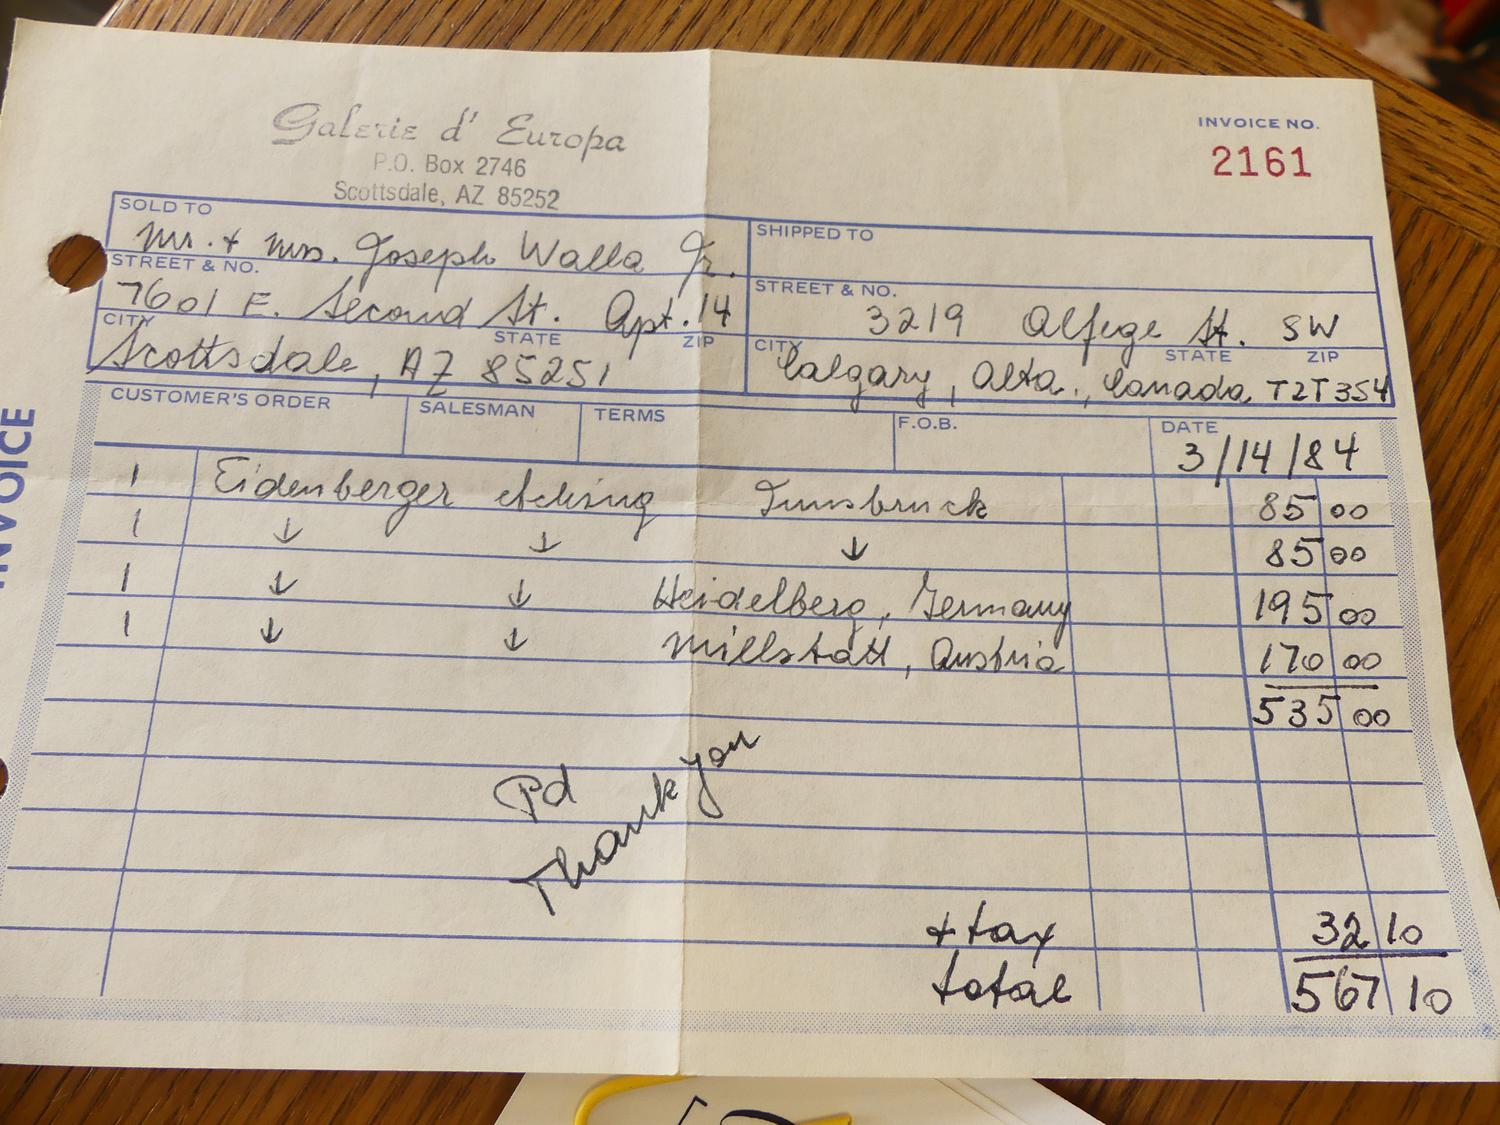 Galerie d' Europa
P.O. Box 2746
Scottsdale, AZ 85252
INVOICE NO.
2161
INVOICE
SOLD TO
Mr. + Mrs. Joseph Walla Jr.
STREET & NO.
7601 E. Second St. Apt. 14
CITY STATE ZIP
Scottsdale, AZ 85251
SHIPPED TO
STREET & NO.
3219 Alfege St. SW
CITY STATE ZIP
Calgary, Alta., Canada T2T3S4
CUSTOMER'S ORDER SALESMAN TERMS F.O.B. DATE
3/14/84
1 Eidenberger etching Innsbruck 85 00
1 ↓ ↓ ↓ 85 00
1 ↓ ↓ Heidelberg, Germany 195 00
1 ↓ ↓ Millstatt, Austria 170 00
535 00
Pd
Thank you
+ tax 32 10
total 567 10